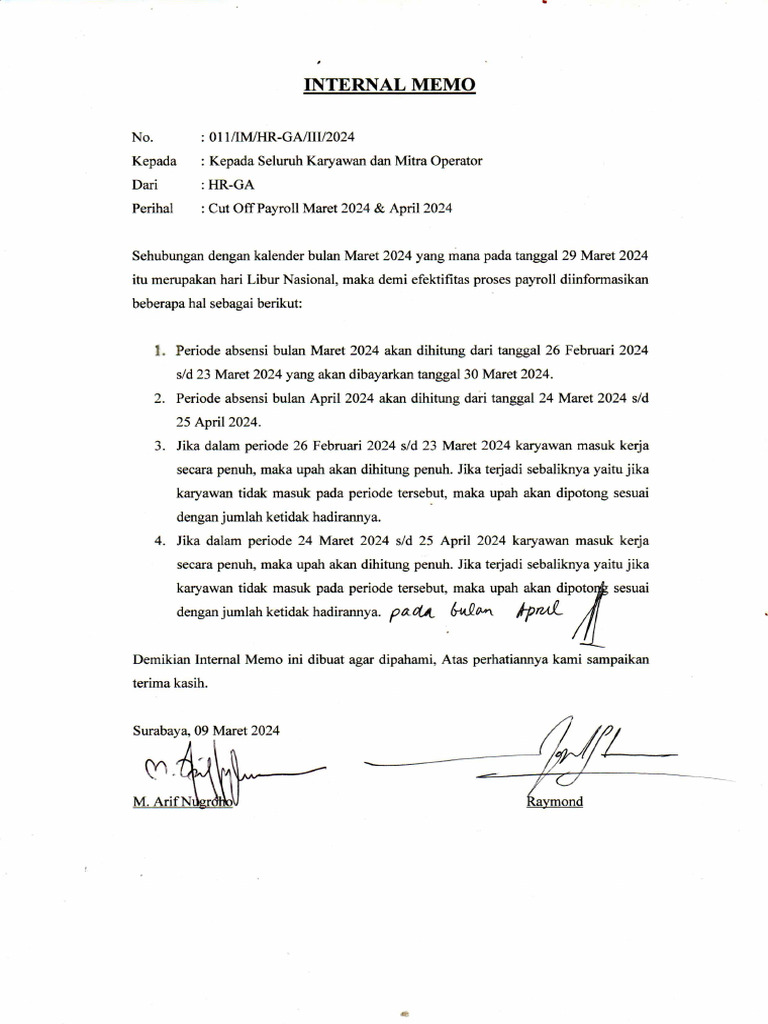 INTERNAL MEMO
No. : 011/IM/HR-GA/III/2024
Kepada : Kepada Seluruh Karyawan dan Mitra Operator
Dari : HR-GA
Perihal : Cut Off Payroll Maret 2024 & April 2024
Sehubungan dengan kalender bulan Maret 2024 yang mana pada tanggal 29 Maret 2024
itu merupakan hari Libur Nasional, maka demi efektifitas proses payroll diinformasikan
beberapa hal sebagai berikut:
1. Periode absensi bulan Maret 2024 akan dihitung dari tanggal 26 Februari 2024
s/d 23 Maret 2024 yang akan dibayarkan tanggal 30 Maret 2024.
2. Periode absensi bulan April 2024 akan dihitung dari tanggal 24 Maret 2024 s/d
25 April 2024.
3. Jika dalam periode 26 Februari 2024 s/d 23 Maret 2024 karyawan masuk kerja
secara penuh, maka upah akan dihitung penuh. Jika terjadi sebaliknya yaitu jika
karyawan tidak masuk pada periode tersebut, maka upah akan dipotong sesuai
dengan jumlah ketidak hadirannya.
4. Jika dalam periode 24 Maret 2024 s/d 25 April 2024 karyawan masuk kerja
secara penuh, maka upah akan dihitung penuh. Jika terjadi sebaliknya yaitu jika
karyawan tidak masuk pada periode tersebut, maka upah akan dipotong sesuai
dengan jumlah ketidak hadirannya. pada bulan April
Demikian Internal Memo ini dibuat agar dipahami, Atas perhatiannya kami sampaikan
terima kasih.
Surabaya, 09 Maret 2024
M. Arif Nugroho Raymond